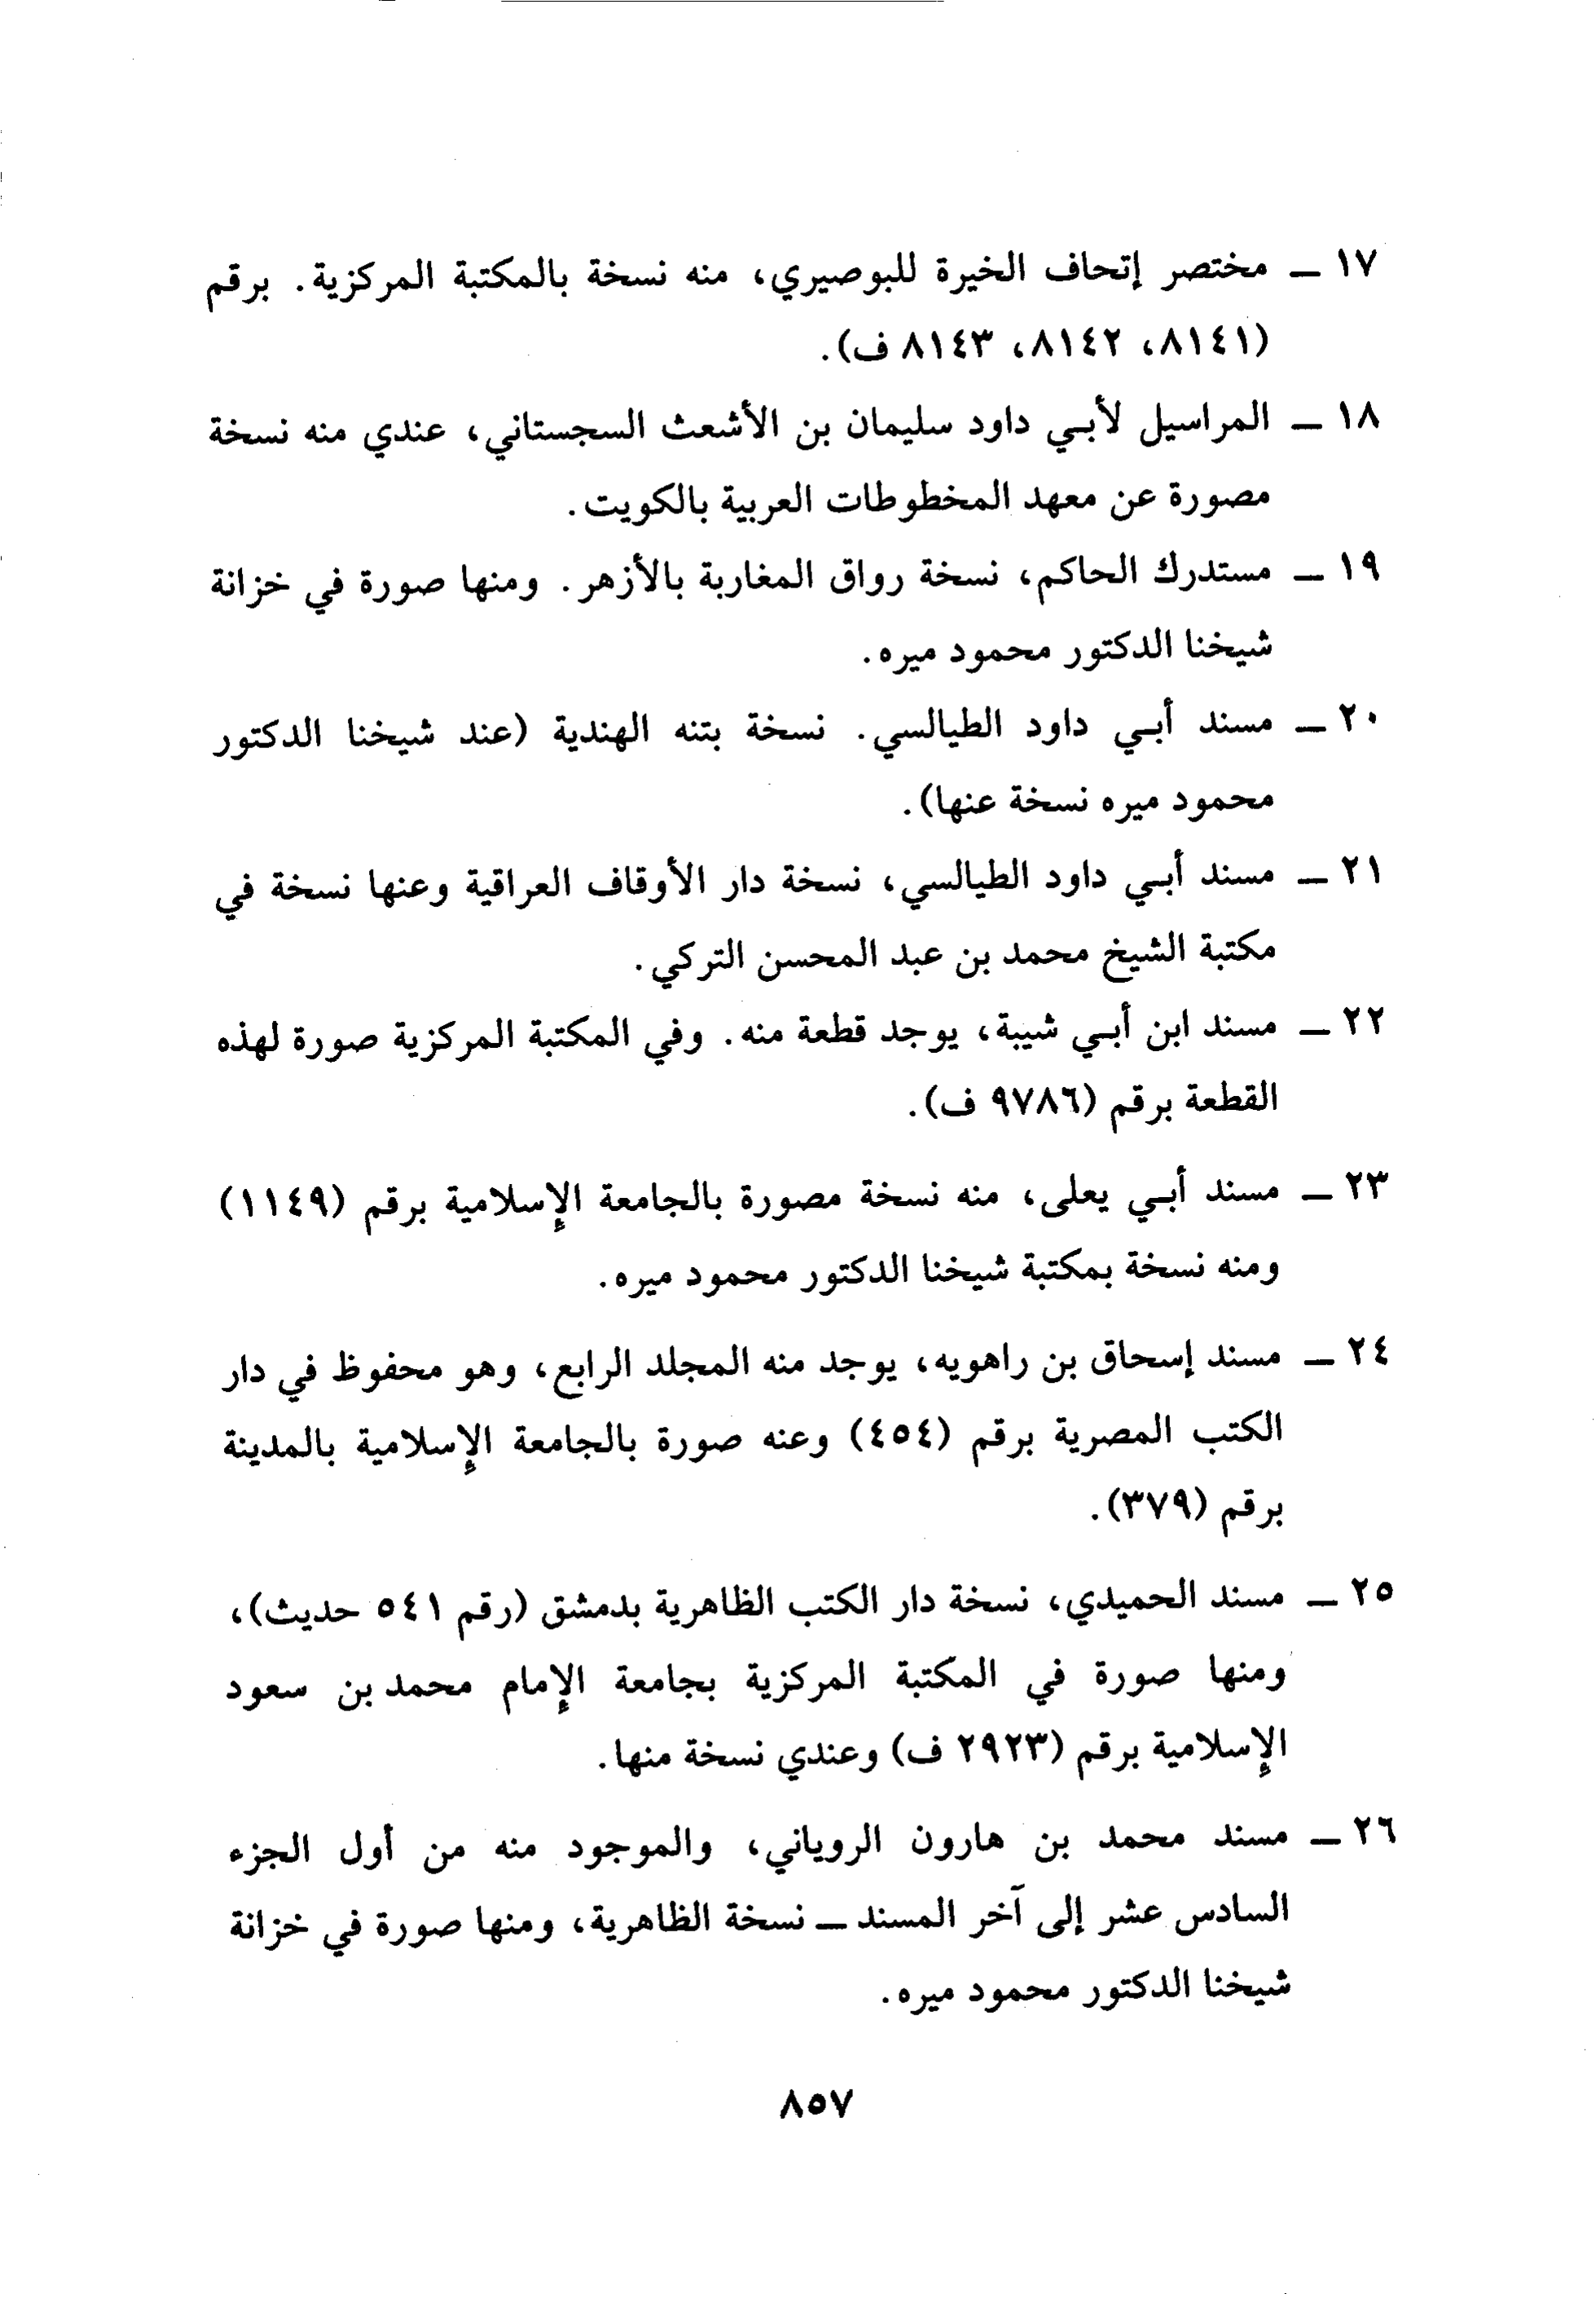 ١٧ ـ مختصر إتحاف الخيرة للبوصيري، منه نسخة بالمكتبة المركزية. برقم
(٨١٤١، ٨١٤٢، ٨١٤٣ ف).
١٨ ـ المراسيل لأبي داود سليمان بن الأشعث السجستاني، عندي منه نسخة
مصورة عن معهد المخطوطات العربية بالكويت.
١٩ ـ مستدرك الحاكم، نسخة رواق المغاربة بالأزهر. ومنها صورة في خزانة
شيخنا الدكتور محمود ميره.
٢٠ ـ مسند أبي داود الطيالسي. نسخة بتنه الهندية (عند شيخنا الدكتور
محمود ميره نسخة عنها).
٢١ ـ مسند أبي داود الطيالسي، نسخة دار الأوقاف العراقية وعنها نسخة في
مكتبة الشيخ محمد بن عبد المحسن التركي.
٢٢ ـ مسند ابن أبي شيبة، يوجد قطعة منه. وفي المكتبة المركزية صورة لهذه
القطعة برقم (٩٧٨٦ ف).
٢٣ ـ مسند أبي يعلى، منه نسخة مصورة بالجامعة الإسلامية برقم (١١٤٩)
ومنه نسخة بمكتبة شيخنا الدكتور محمود ميره.
٢٤ ـ مسند إسحاق بن راهويه، يوجد منه المجلد الرابع، وهو محفوظ في دار
الكتب المصرية برقم (٤٥٤) وعنه صورة بالجامعة الإسلامية بالمدينة
برقم (٣٧٩).
٢٥ ـ مسند الحميدي، نسخة دار الكتب الظاهرية بدمشق (رقم ٥٤١ حديث)،
ومنها صورة في المكتبة المركزية بجامعة الإمام محمد بن سعود
الإسلامية برقم (٢٩٢٣ ف) وعندي نسخة منها.
٢٦ ـ مسند محمد بن هارون الروياني، والموجود منه من أول الجزء
السادس عشر إلى آخر المسند ـ نسخة الظاهرية، ومنها صورة في خزانة
شيخنا الدكتور محمود ميره.
٨٥٧